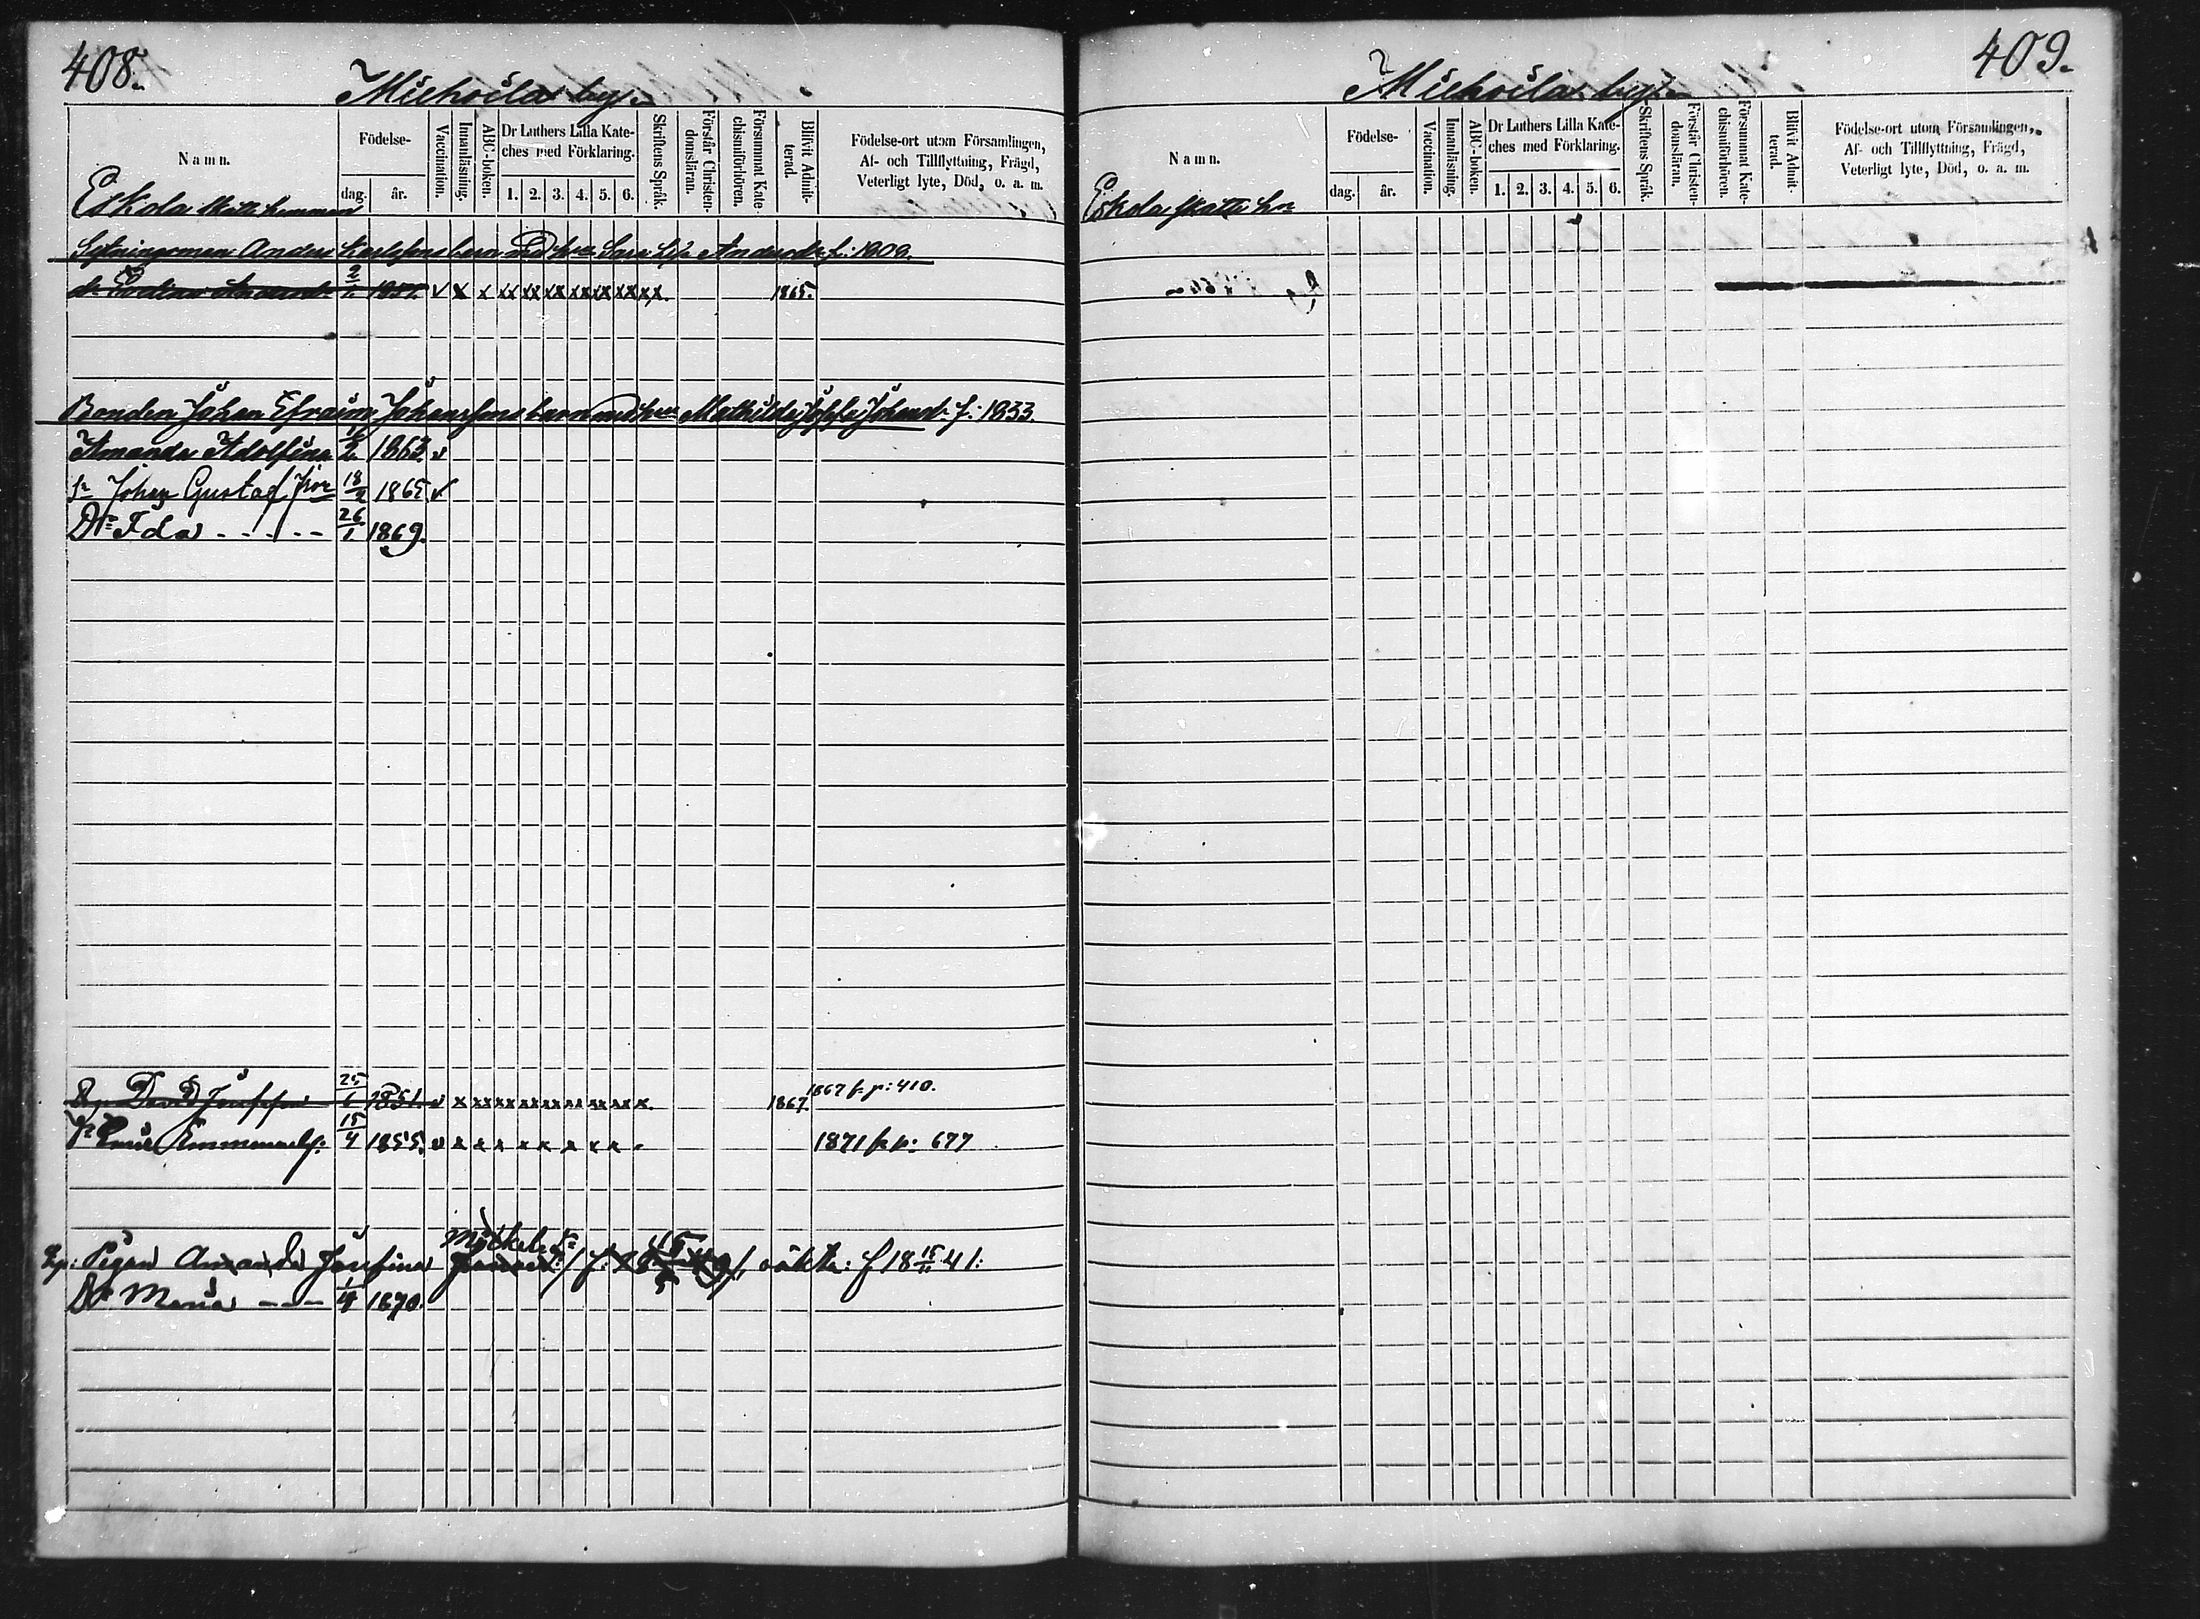 408.
Miehoila by.
Namn.
Födelse-
dag.
år.
Vaccination.
Innanläsning.
ABC-boken.
Dr Luthers Lilla Kate-
ches med Förklaring.
1. 2. 3. 4. 5. 6.
Skriftens Språk.
Förstår Christen-
domsläran.
Försummat Kate-
chismiförhören.
Blifvit Admit-
terad.
Födelse-ort utom Församlingen,
Af- och Tillflyttning, Frägd,
Veterligt lyte, Död, o. a. m.
Eskola skatte hemman
Anders Karlssons barn med hu Sara Andersdr f: 1809.
2/1 1851 v x x xx xx xx xx xx xx x,x. 1865.
Bonden Johan Efraim Johanssons barn med hu Mathilda Johansdr f: 1833.
Amanda Adolfina 1863. v
sn Johan Gustaf 18/2 1865 v
Dr Ida - - - - - 26/1 1869.
David Josefsson 25/6 1851. v x xx xx xx xx xx xx xx x. 1867. 1867 p:410.
Emmanuelss: 15/4 1855. v x x x x x x x x 1871 p: 677
Pigan Amanda Josefina oäkta: f 18 15/11 41:
Dr Maria - - - 1870.
409.
Miehoila by.
Namn.
Födelse-
dag.
år.
Vaccination.
Innanläsning.
ABC-boken.
Dr Luthers Lilla Kate-
ches med Förklaring.
1. 2. 3. 4. 5. 6.
Skriftens Språk.
Förstår Christen-
domsläran.
Försummat Kate-
chismiförhören.
Blifvit Admit-
terad.
Födelse-ort utom Församlingen,
Af- och Tillflyttning, Frägd,
Veterligt lyte, Död, o. a. m.
Eskola skatte hn